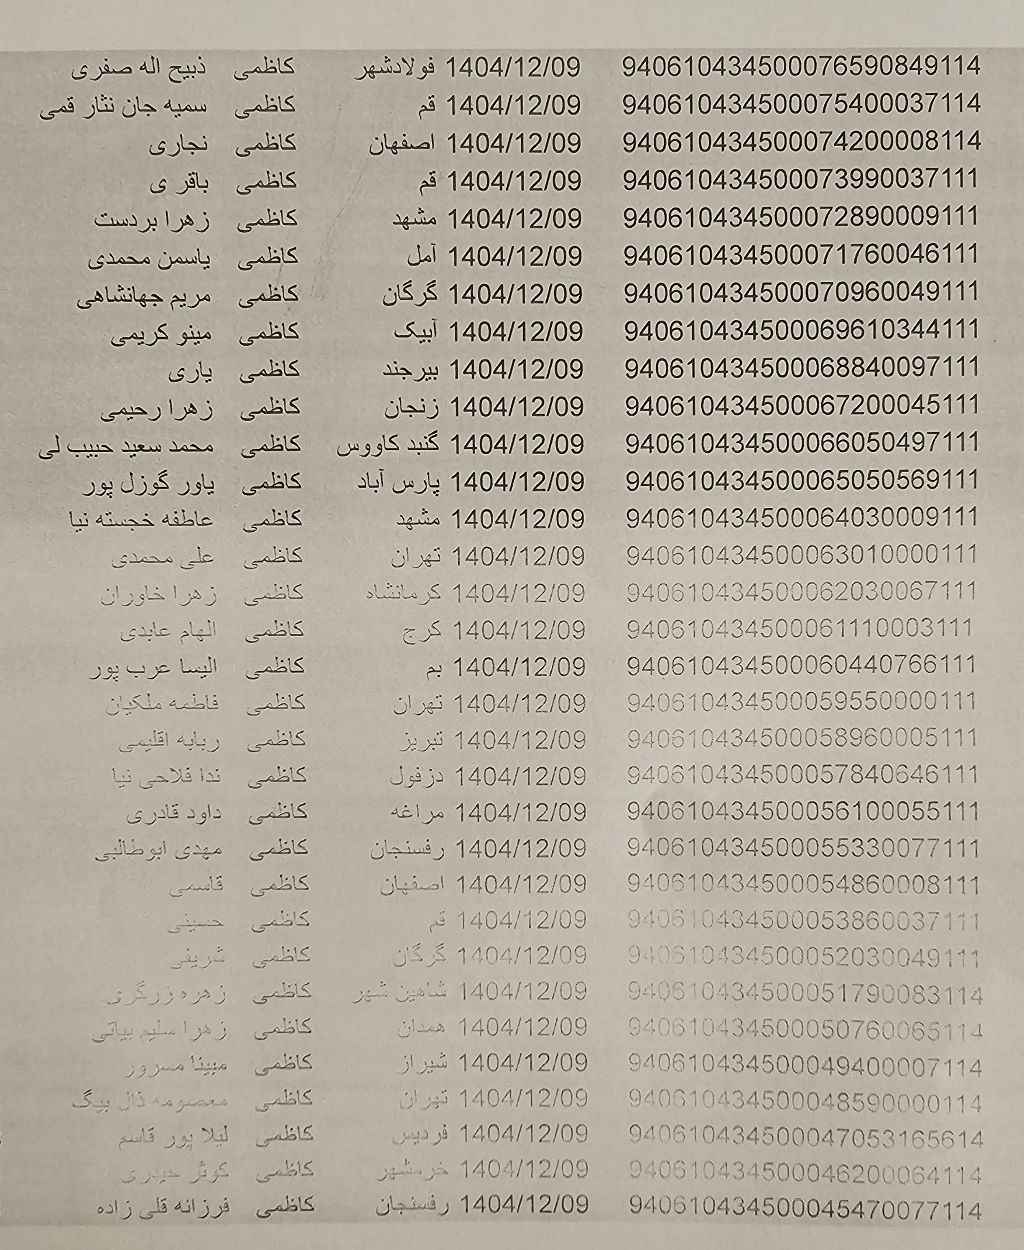 940610434500076590849114 1404/12/09 فولادشهر کاظمی ذبیح اله صفری
940610434500075400037114 1404/12/09 قم کاظمی سمیه جان نثار قمی
940610434500074200008114 1404/12/09 اصفهان کاظمی نجاری
940610434500073990037111 1404/12/09 قم کاظمی باقر ی
940610434500072890009111 1404/12/09 مشهد کاظمی زهرا بردست
940610434500071760046111 1404/12/09 آمل کاظمی یاسمن محمدی
940610434500070960049111 1404/12/09 گرگان کاظمی مریم جهانشاهی
940610434500069610344111 1404/12/09 آبیک کاظمی مینو کریمی
940610434500068840097111 1404/12/09 بیرجند کاظمی یاری
940610434500067200045111 1404/12/09 زنجان کاظمی زهرا رحیمی
940610434500066050497111 1404/12/09 گنبد کاووس کاظمی محمد سعید حبیب لی
940610434500065050569111 1404/12/09 پارس آباد کاظمی یاور گوزل پور
940610434500064030009111 1404/12/09 مشهد کاظمی عاطفه خجسته نیا
940610434500063010000111 1404/12/09 تهران کاظمی علی محمدی
940610434500062030067111 1404/12/09 کرمانشاه کاظمی زهرا خاوران
940610434500061110003111 1404/12/09 کرج کاظمی الهام عابدی
940610434500060440766111 1404/12/09 بم کاظمی الیسا عرب پور
940610434500059550000111 1404/12/09 تهران کاظمی فاطمه ملکیان
940610434500058960005111 1404/12/09 تبریز کاظمی ربابه اقلیمی
940610434500057840646111 1404/12/09 دزفول کاظمی ندا فلاحی نیا
940610434500056100055111 1404/12/09 مراغه کاظمی داود قادری
940610434500055330077111 1404/12/09 رفسنجان کاظمی مهدی ابوطالبی
940610434500054860008111 1404/12/09 اصفهان کاظمی قاسمی
940610434500053860037111 1404/12/09 قم کاظمی حسینی
940610434500052030049111 1404/12/09 گرگان کاظمی شریفی
940610434500051790083114 1404/12/09 شاهین شهر کاظمی زهره زرگری
940610434500050760065114 1404/12/09 همدان کاظمی زهرا سلیم بیاتی
940610434500049400007114 1404/12/09 شیراز کاظمی مبینا مسرور
940610434500048590000114 1404/12/09 تهران کاظمی معصومه ذال بیگ
940610434500047053165614 1404/12/09 فردیس کاظمی لیلا پور قاسم
940610434500046200064114 1404/12/09 خرمشهر کاظمی کوثر حیدری
940610434500045470077114 1404/12/09 رفسنجان کاظمی فرزانه قلی زاده